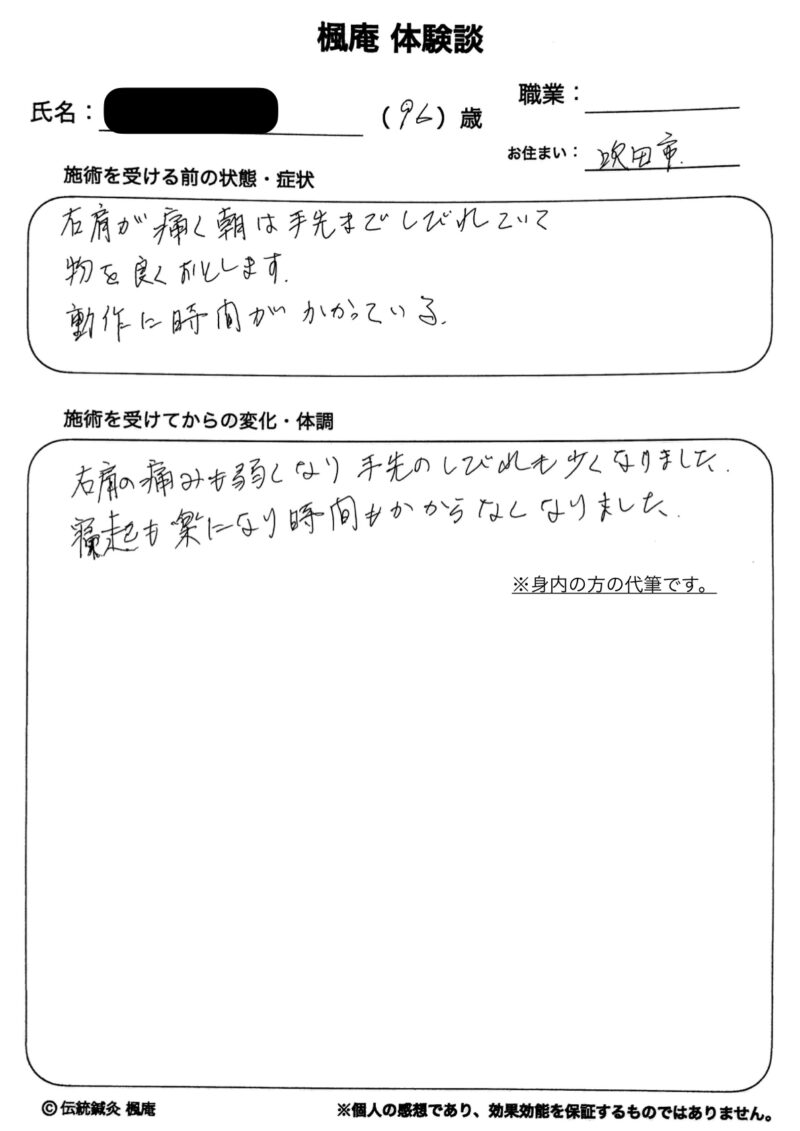 楓庵 体験談
氏名：
（96）歳
職業：
お住まい：吹田市.
施術を受ける前の状態・症状
右肩が痛く朝は手先までしびれていて
物を良くおとします.
動作に時間がかかっている.
施術を受けてからの変化・体調
右肩の痛みも弱くなり手先のしびれも少くなりました.
寝起も楽になり時間もかからなくなりました.
※身内の方の代筆です。
© 伝統鍼灸 楓庵
※個人の感想であり、効果効能を保証するものではありません。